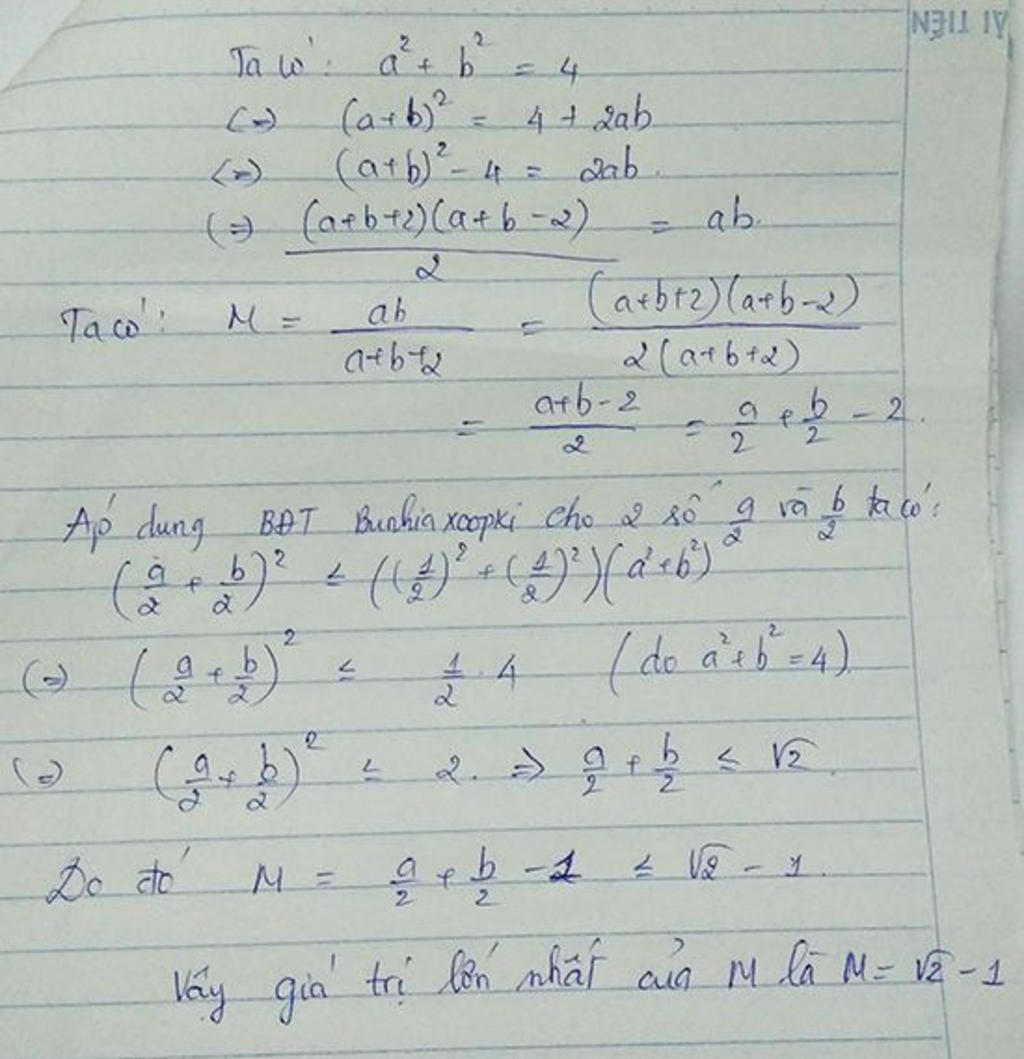 ẢI TIẾN
Ta có: a² + b² = 4
(=) (a+b)² = 4 + 2ab
(=) (a+b)² - 4 = 2ab.
(=) (a+b+2)(a+b-2)/2 = ab.
Ta có: M = ab/(a+b+2) = (a+b+2)(a+b-2)/2(a+b+2)
= (a+b-2)/2 = a/2 + b/2 - 2.
Áp dung BĐT Bunhiaxcopki cho 2 số a/2 và b/2 ta có:
(a/2 + b/2)² ≤ ((1/2)² + (1/2)²)(a²+b²)
(=) (a/2 + b/2)² ≤ 1/2 . 4 (do a²+b²=4)
(=) (a/2 + b/2)² ≤ 2. => a/2 + b/2 ≤ √2.
Do đó M = a/2 + b/2 - 1 ≤ √2 - 1.
Vậy giá trị lớn nhất của M là M = √2 - 1